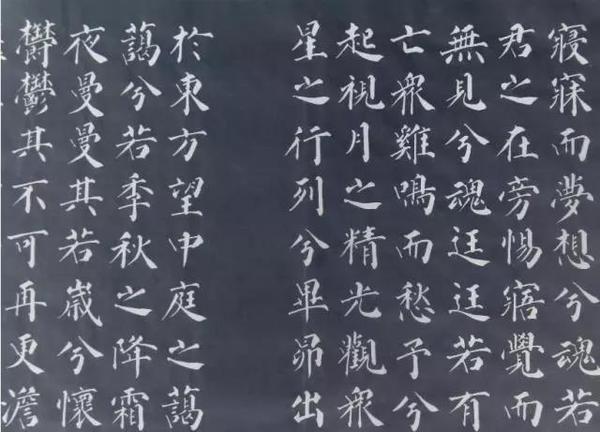 寢寐而夢想兮魂若
君之在旁惕寤覺而
無見兮魂迋迋若有
亡衆雞鳴而愁予兮
起視月之精光觀衆
星之行列兮畢昴出
於東方望中庭之藹
藹兮若季秋之降霜
夜曼曼其若嵗兮懷
鬱鬱其不可再更澹